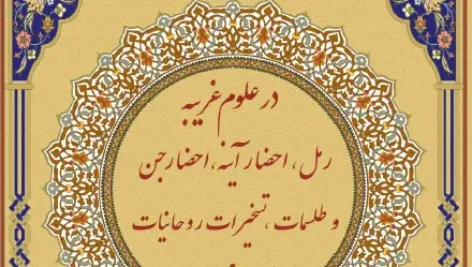 در علوم غریبه
رمل، احضار آینه، احضار جن
و طلسمات، تسخیرات روحانیات